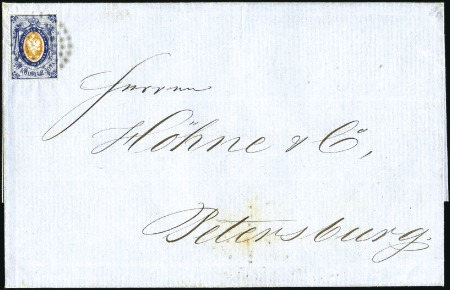 Herren
Höhne & Co,
Petersburg.